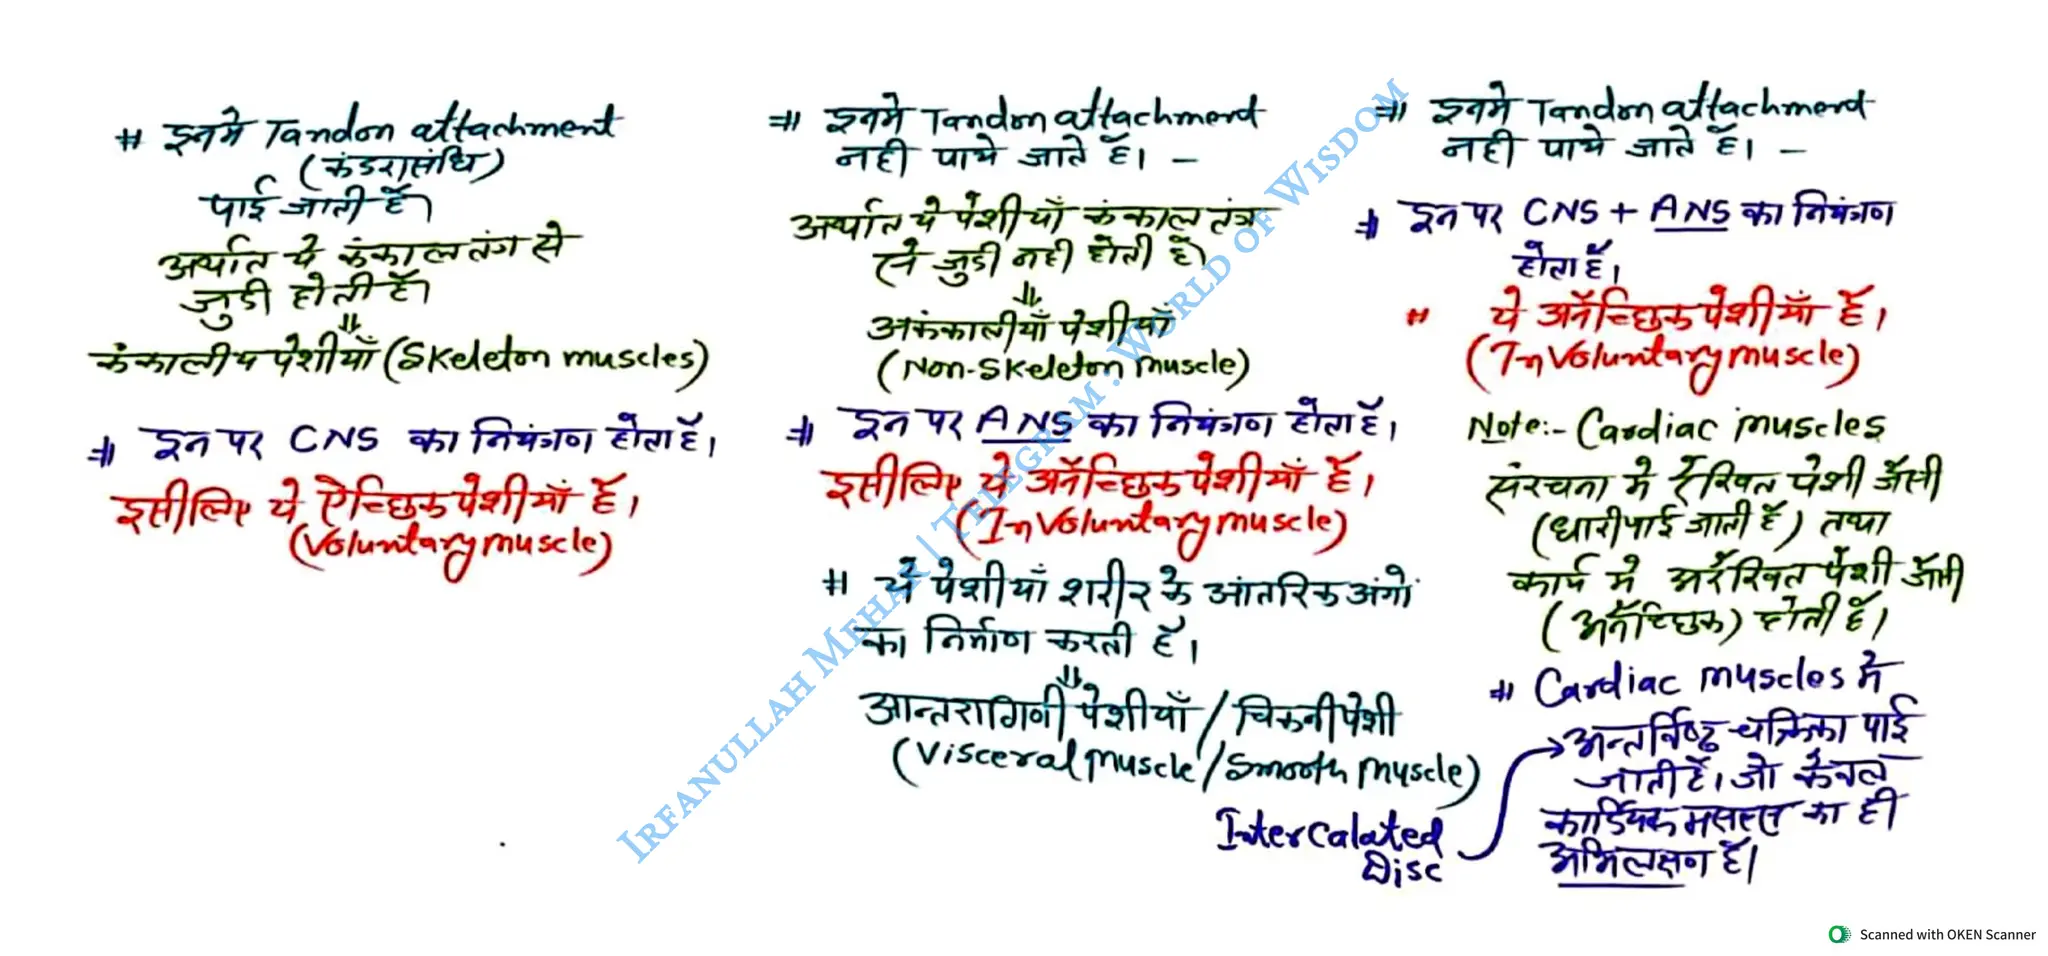 # इनमे Tandon attachment
(कंडरासंधि)
पाई जाती है।
अर्थात ये कंकाल तंत्र से
जुडी होती है।
⇓
कंकालीय पेशीयाँ (Skeleton muscles)
⇒ इन पर CNS का नियंत्रण होता है।
इसीलिए ये ऐच्छिक पेशीयाँ हैं।
(Voluntary muscle)
⇒ इनमे Tandon attachment
नही पाये जाते हैं। –
अर्थात ये पेशीयाँ कंकाल तंत्र
से जुडी नही होती है।
⇓
अकंकालीयाँ पेशीयाँ
(Non-Skeleton muscle)
⇒ इन पर ANS का नियंत्रण होता है।
इसीलिए ये अनैच्छिक पेशीयाँ हैं।
(InVoluntary muscle)
# ये पेशीयाँ शरीर के आंतरिक अंगो
का निर्माण करती हैं।
⇓
आन्तरागिणी पेशीयाँ / चिकनी पेशी
(Visceral muscle / Smooth muscle)
Intercalated
Disc
⇒ इनमे Tandon attachment
नही पाये जाते हैं। –
⇒ इन पर CNS + ANS का नियंत्रण
होता है।
" ये अनैच्छिक पेशीयाँ हैं।
(InVoluntary muscle)
Note:- Cardiac muscles
संरचना मे रेखित पेशी जैसी
(धारी पाई जाती है) तथा
कार्य मे अरेखित पेशी जैसी
(अनैच्छिक) होती है।
⇒ Cardiac muscles मे
अन्तर्विष्ट चक्रिका पाई
जाती है। जो केवल
कार्डियक मसल्स का ही
अभिलक्षण है।
Irfanullah Mehar | Telegram: World of Wisdom
Scanned with OKEN Scanner